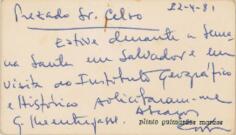 Prezado Sr. Celso 22-4-81
Estive durante a Sema
na Santa em Salvador e em
visita ao Instituto Geográfico
e Histórico solicitaram-me
Abraços
plinio guimarães moraes